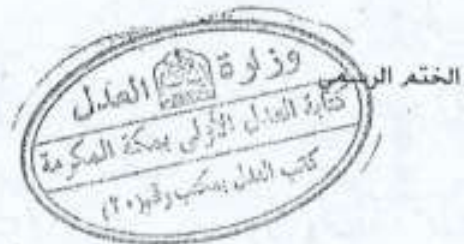 الختم الرسمي
وزارة العدل
كتابة العدل الأولى بمكة المكرمة
كاتب العدل بمكتب رقم (٢٠)